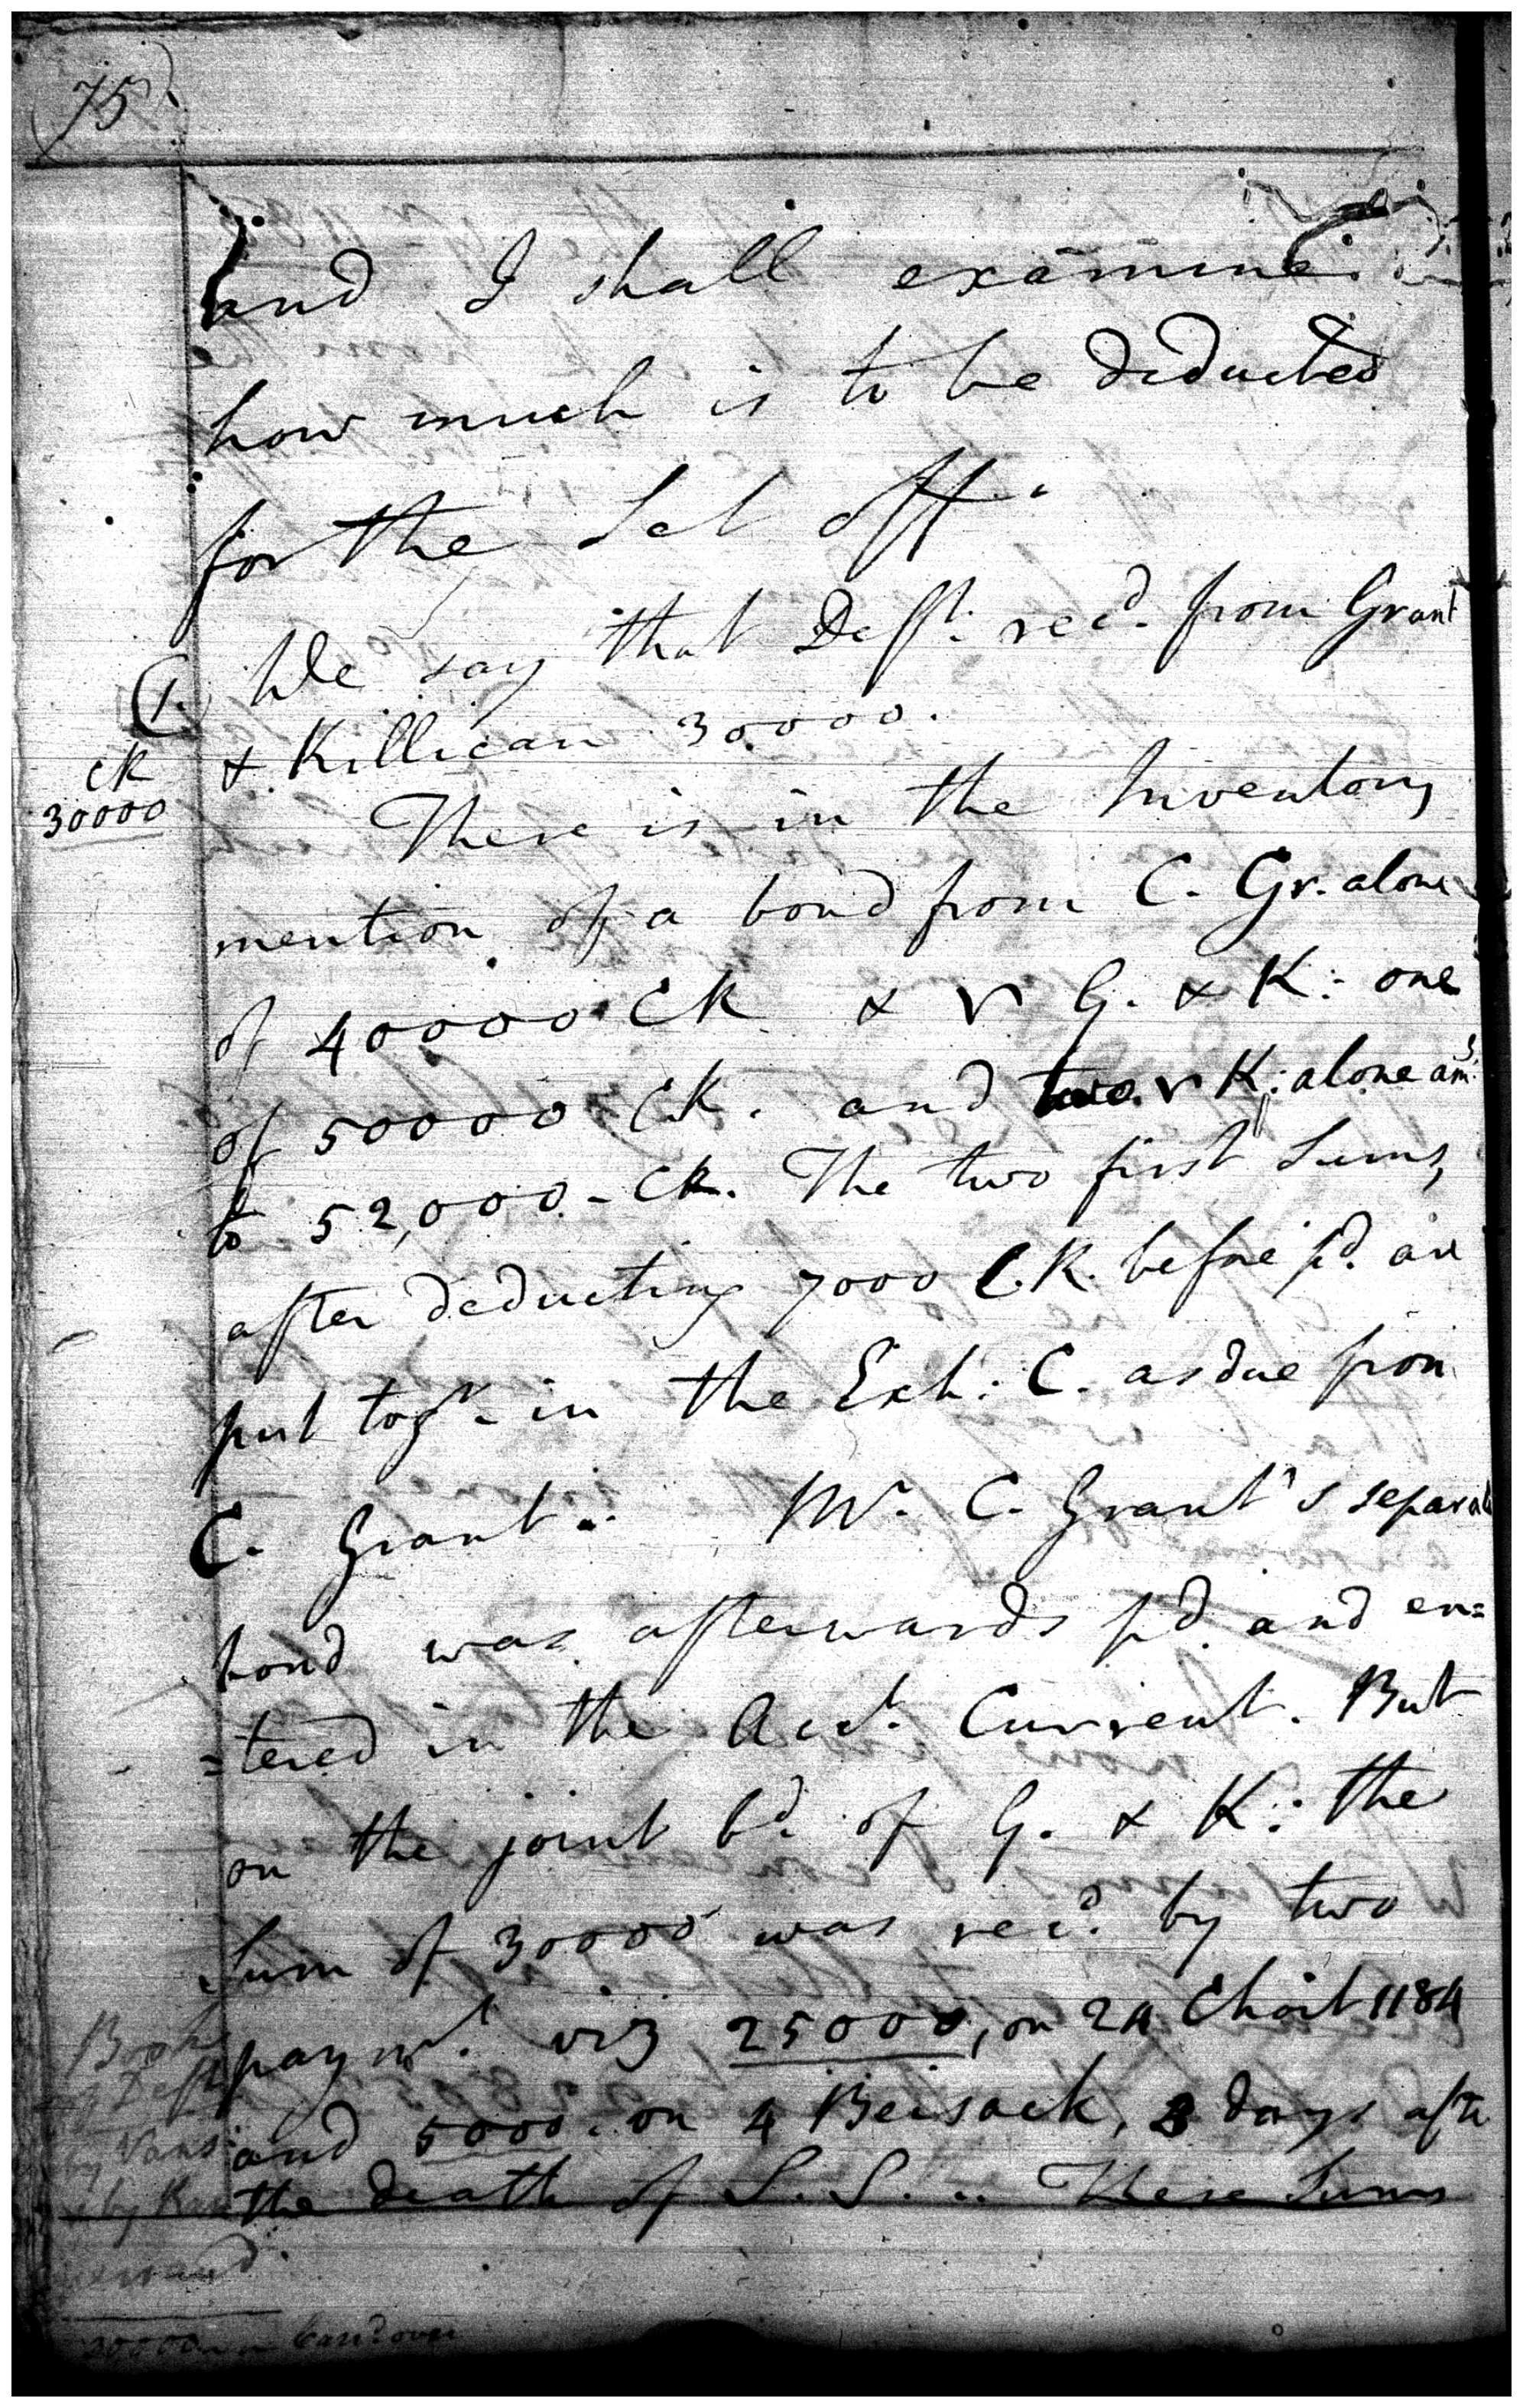 75
and I shall examine
how much is to be deducted
for the Set off.
1. We say that Deft. recd. from Grant
& Killican 30000.
CR
30000
There is in the Inventory
mention of a bond from C. Gr. alone
of 40000 CR & v G. & K: one
of 50000 CR. and two v K: alone amt.
to 52,000 - CR. The two first Sums,
after deducting 7000 C.R. before pd. are
put togr. in the Exh: C. as due from
C. Grant. Mr. C. Grant's separate
bond was afterwards pd. and en=
=tered in the Acct. Current. But
on the joint bd. of G. & K: the
Sum of 30000 was recd. by two
paymt. viz 25000, on 24 Choit 1184
and 5000. on 4 Beisack, 3 days afte
the death of S. S. .. These Sums
Books
Deft
by Vans
by
30000 Carrd. over